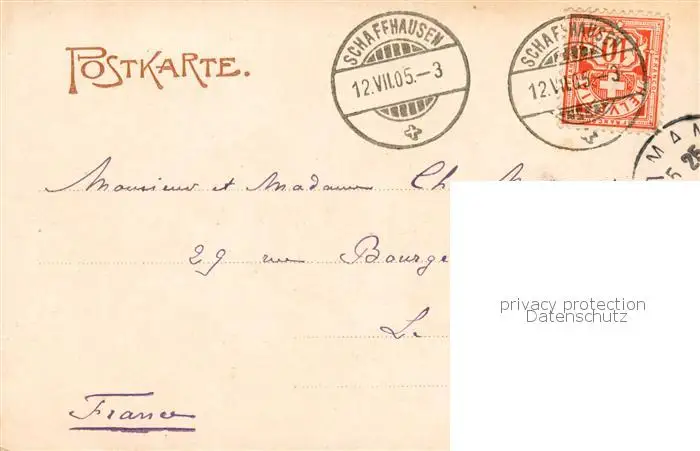 POSTKARTE.
SCHAFFHAUSEN
12.VII.05.–3
SCHAFFHAUSEN
12.VII.05.–3
10
HELVETIA
FRANCO
Monsieur et Madame Ch
29 rue Bourge
Le
France
privacy protection
Datenschutz